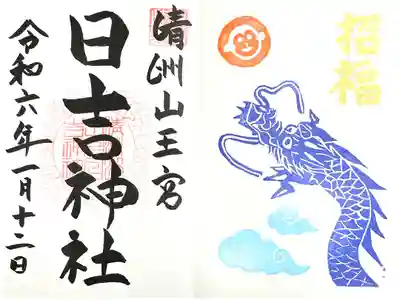 招福
清洲山王宮
日吉神社
令和六年一月十二日